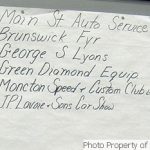 Main St Auto Service
Brunswick Fyr
George S Lyons
Green Diamond Equip
Moncton Speed & Custom Club
Sons Car Show
Photo Property of